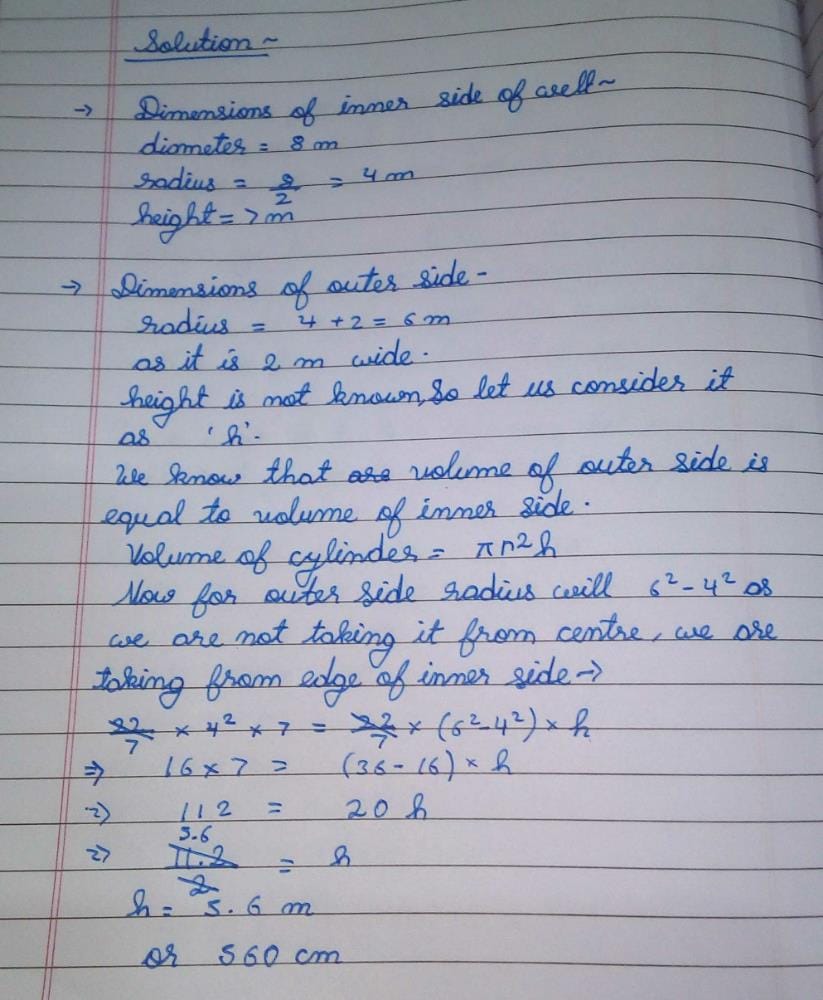 Solution ~
→ Dimensions of inner side of well~
diameter = 8 m
radius = 8/2 = 4 m
height = 7 m
→ Dimensions of outer side -
radius = 4 + 2 = 6 m
as it is 2 m wide.
height is not known, so let us consider it
as 'h'.
We know that are volume of outer side is
equal to volume of inner side.
Volume of cylinder = πr²h
Now for outer side radius will 6² - 4² as
we are not taking it from centre, we are
taking from edge of inner side →
22/7 × 4² × 7 = 22/7 × (6² - 4²) × h
⇒ 16 × 7 = (36 - 16) × h
⇒ 112 = 20 h
5.6
⇒ 11.2/2 = h
h = 5.6 m
or 560 cm